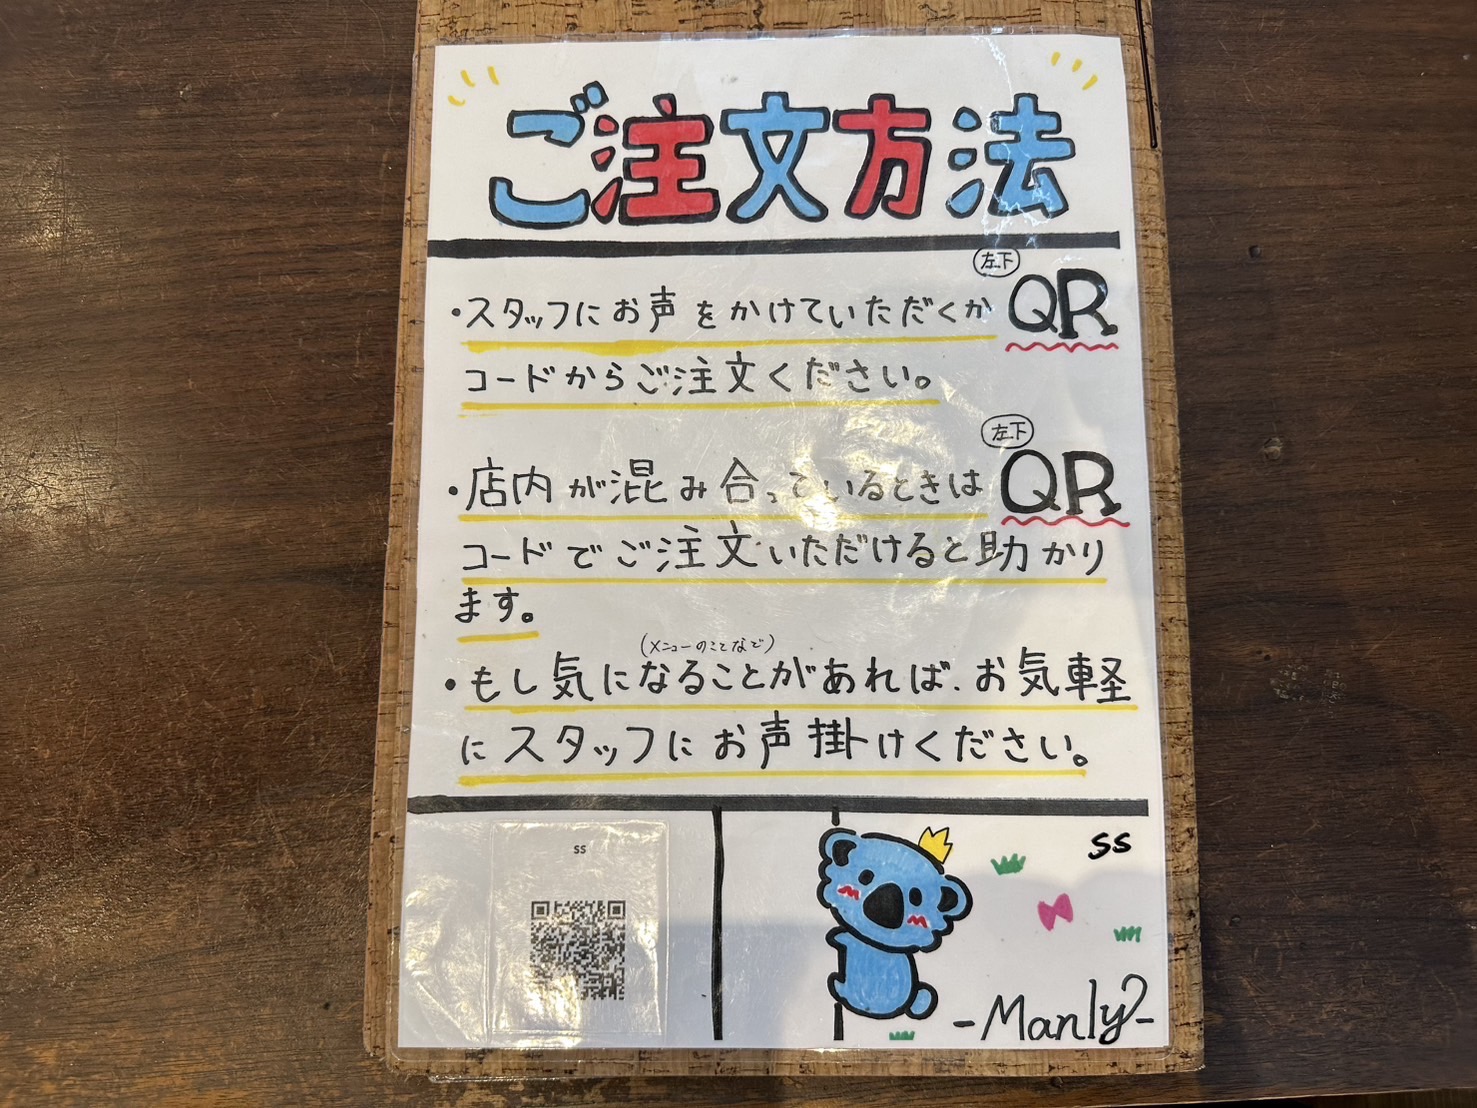 ご注文方法
左下
・スタッフにお声をかけていただくか QR
コードからご注文ください。
左下
・店内が混み合っているときは QR
コードでご注文いただけると助かり
ます。
(メニューのことなど)
・もし気になることがあれば、お気軽
にスタッフにお声掛けください。
ss
ss
-Manly-